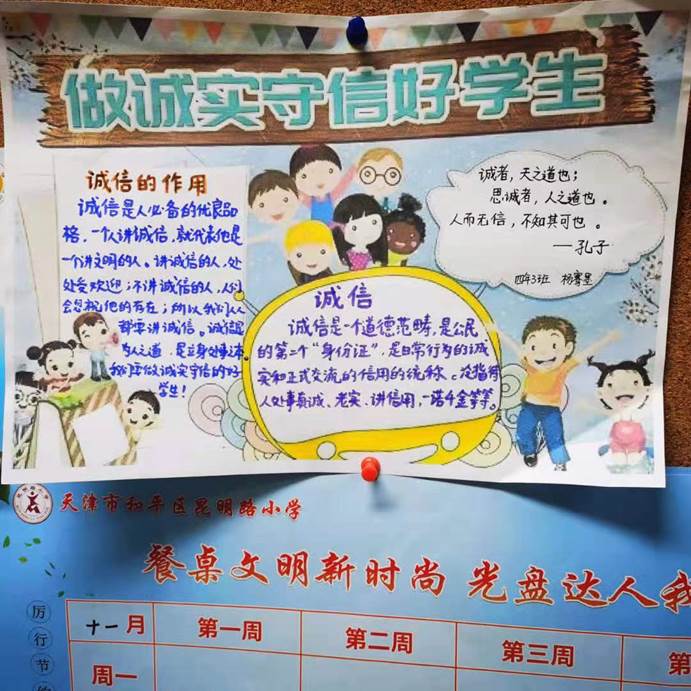 做诚实守信好学生
诚信的作用
诚信是人必备的优良品
格，一个人讲诚信，就代表他是
一个讲文明的人。讲诚信的人，处
处受欢迎；不讲诚信的人，人们
会忽视他的存在；所以我们人
人都要讲诚信。诚信是
为人之道，是立身处事之本
我们要做诚实守信的好
学生！
诚者，天之道也；
思诚者，人之道也。
人而无信，不知其可也。
——孔子
四年3班 杨骞墨
诚信
诚信是一个道德范畴，是公民
的第二个“身份证”，是日常行为的诚
实和正式交流的信用的统称。泛指待
人处事真诚、老实、讲信用，一诺千金等等。
天津市和平区昆明路小学
餐桌文明新时尚 光盘达人我
厉行节
十一月 第一周 第二周 第三周 第
周一